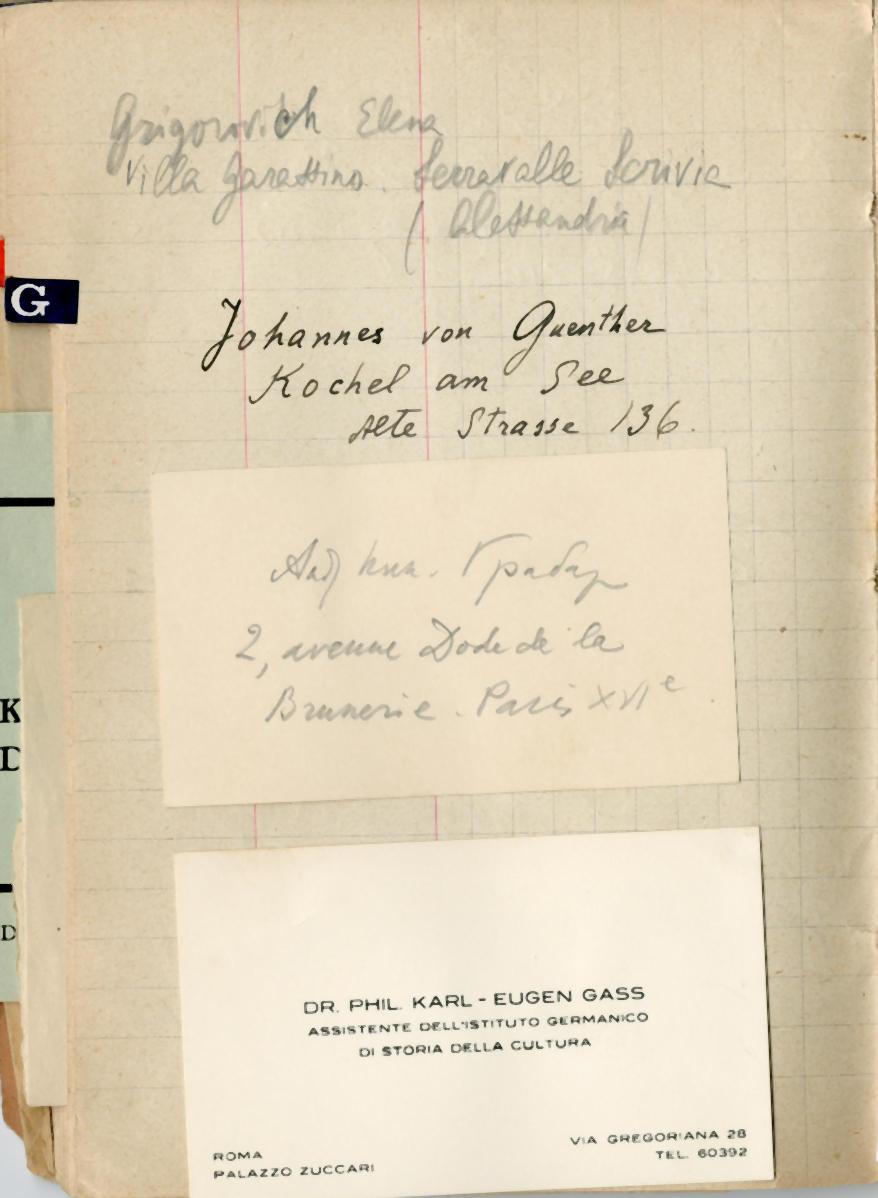 Grigorovich Elena
Villa Garassino. Serravalle Scrivia
(Alessandria)
G
Johannes von Guenther
Kochel am See
Alte Strasse 136.
Грабар
2, avenue Dode de la
Brunerie. Paris XVIe
K
D
D
DR. PHIL. KARL-EUGEN GASS
ASSISTENTE DELL'ISTITUTO GERMANICO
DI STORIA DELLA CULTURA
ROMA
PALAZZO ZUCCARI
VIA GREGORIANA 28
TEL. 60392